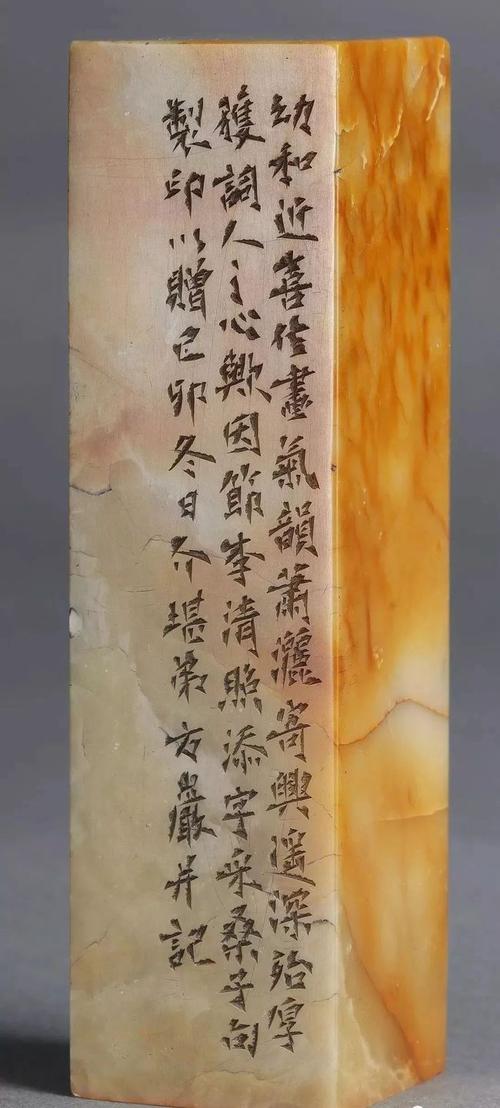 幼和近喜作畫氣韻蕭灑寄興遥深殆厚
獲詞人之心歟因節李清照添字采桑子句
製印以贈己卯冬日介堪弟方巖并記